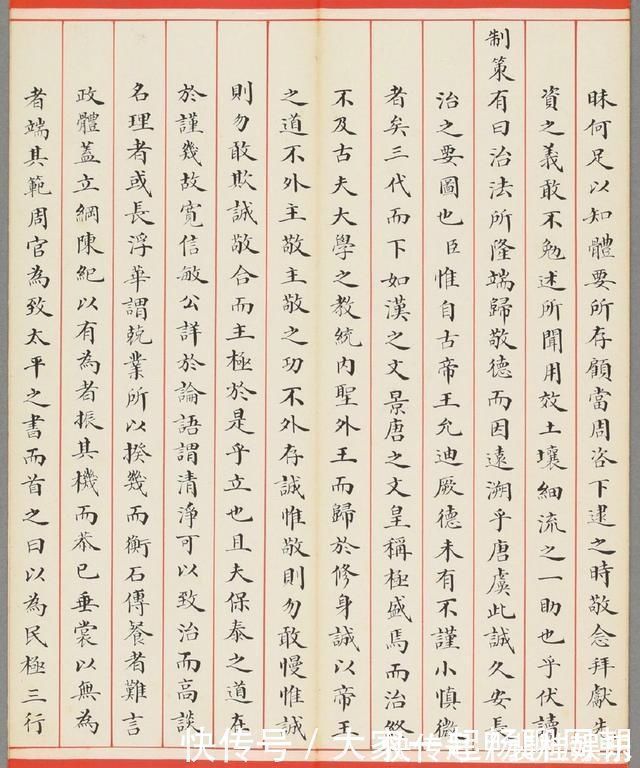 昧何足以知體要所存顧當周咨下逮之時敬念拜獻先
資之義敢不勉述所聞用效土壤細流之一助也乎伏讀
制策有曰治法所隆端歸敬德而因遠溯乎唐虞此誠久安長
治之要圖也臣惟自古帝王允迪厥德未有不謹小慎微
者矣三代而下如漢之文景唐之文皇稱極盛焉而治終
不及古夫大學之教統內聖外王而歸於修身誠以帝王
之道不外主敬主敬之功不外存誠惟敬則勿敢慢惟誠
則勿敢欺誠敬合而主極於是乎立也且夫保泰之道在
於謹幾故寬信敏公詳於論語謂清淨可以致治而高談
名理者或長浮華謂兢業所以揆幾而衡石傳餐者難言
政體蓋立綱陳紀以有為者振其機而恭已垂裳以無為
者端其範周官為致太平之書而首之曰以為民極三行
快传号 /